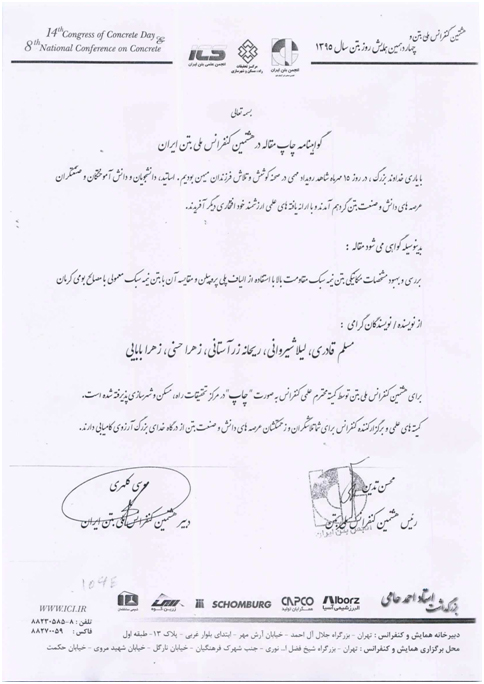 14th Congress of Concrete Day &
8th National Conference on Concrete
هشتمین کنفرانس ملی بتن و
چهاردهمین همایش روز بتن سال ۱۳۹۵
ICS
انجمن علمی بتن ایران
مرکز تحقیقات
راه، مسکن و شهرسازی
انجمن بتن ایران
بسمه تعالی
گواهینامه چاپ مقاله در هشتمین کنفرانس ملی بتن ایران
با یاری خداوند بزرگ، در روز ۱۵ مهرماه شاهد رویداد مهمی در صحنه کوشش و تلاش فرزندان میهن بودیم. اساتید، دانشجویان و دانش آموختگان و صنعتگران
عرصه های دانش و صنعت بتن گرد هم آمدند و با ارائه یافته های علمی ارزشمند خود افتخاری دیگر آفریدند.
بدینوسیله گواهی می شود مقاله :
بررسی و بهبود مشخصات مکانیکی بتن نیمه سبک مقاومت بالا با استفاده از الیاف پلی پروپیلن و مقایسه آن با بتن نیمه سبک معمولی با مصالح بومی کرمان
از نویسنده / نویسندگان گرامی :
مسلم قادری، لیلا شیروانی، ریحانه زرآستانی، زهرا حسنی، زهرا بابایی
برای هشتمین کنفرانس ملی بتن توسط کمیته محترم علمی کنفرانس به صورت "چاپ" در مرکز تحقیقات راه، مسکن و شهرسازی پذیرفته شده است.
کمیته های علمی و برگزارکننده کنفرانس برای شما تلاشگران و زحمتکشان عرصه های دانش و صنعت بتن از درگاه خدای بزرگ آرزوی کامیابی دارند.
محسن تدین
رئیس هشتمین کنفرانس ملی بتن
موسی کلهری
دبیر هشتمین کنفرانس ملی بتن ایران
بزرگداشت استاد احمد حامی
Alborz
البرز شیمی آسیا
CAPCO
SCHOMBURG
WWW.ICI.IR
تلفن : ۸-۸۸۲۳۰۵۸۵
فاکس : ۸۸۲۷۰۰۵۹
دبیرخانه همایش و کنفرانس : تهران - بزرگراه جلال آل احمد - خیابان آرش مهر - ابتدای بلوار غربی - پلاک ۱۳- طبقه اول
محل برگزاری همایش و کنفرانس : تهران - بزرگراه شیخ فضل ا... نوری - جنب شهرک فرهنگیان - خیابان نارگل - خیابان شهید مروی - خیابان حکمت